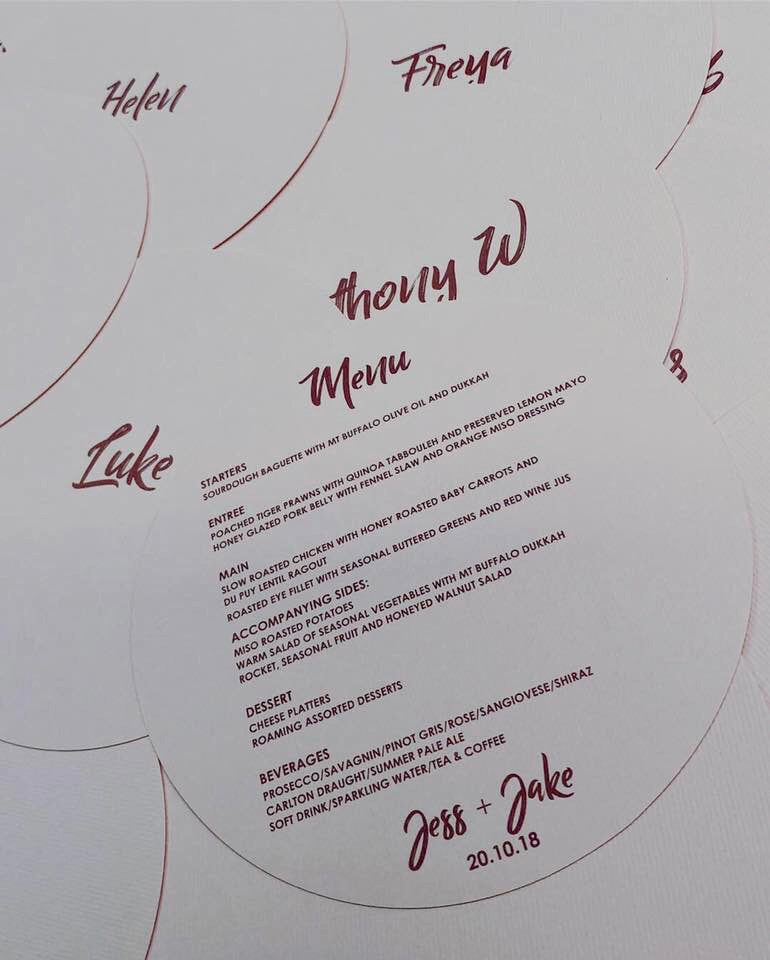 Helen
Freya
thony W
Luke
Menu
STARTERS
SOURDOUGH BAGUETTE WITH MT BUFFALO OLIVE OIL AND DUKKAH
ENTREE
POACHED TIGER PRAWNS WITH QUINOA TABBOULEH AND PRESERVED LEMON MAYO
HONEY GLAZED PORK BELLY WITH FENNEL SLAW AND ORANGE MISO DRESSING
MAIN
SLOW ROASTED CHICKEN WITH HONEY ROASTED BABY CARROTS AND
DU PUY LENTIL RAGOUT
ROASTED EYE FILLET WITH SEASONAL BUTTERED GREENS AND RED WINE JUS
ACCOMPANYING SIDES:
MISO ROASTED POTATOES
WARM SALAD OF SEASONAL VEGETABLES WITH MT BUFFALO DUKKAH
ROCKET, SEASONAL FRUIT AND HONEYED WALNUT SALAD
DESSERT
CHEESE PLATTERS
ROAMING ASSORTED DESSERTS
BEVERAGES
PROSECCO/SAVAGNIN/PINOT GRIS/ROSE/SANGIOVESE/SHIRAZ
CARLTON DRAUGHT/SUMMER PALE ALE
SOFT DRINK/SPARKLING WATER/TEA & COFFEE
Jess + Jake
20.10.18